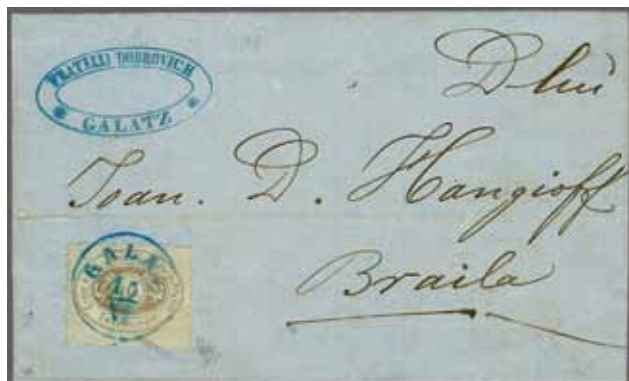 FRATELLI DOBROVICH
GALATZ
Dlui
Joan. D. Hangioff
Braila
GALAZ
10